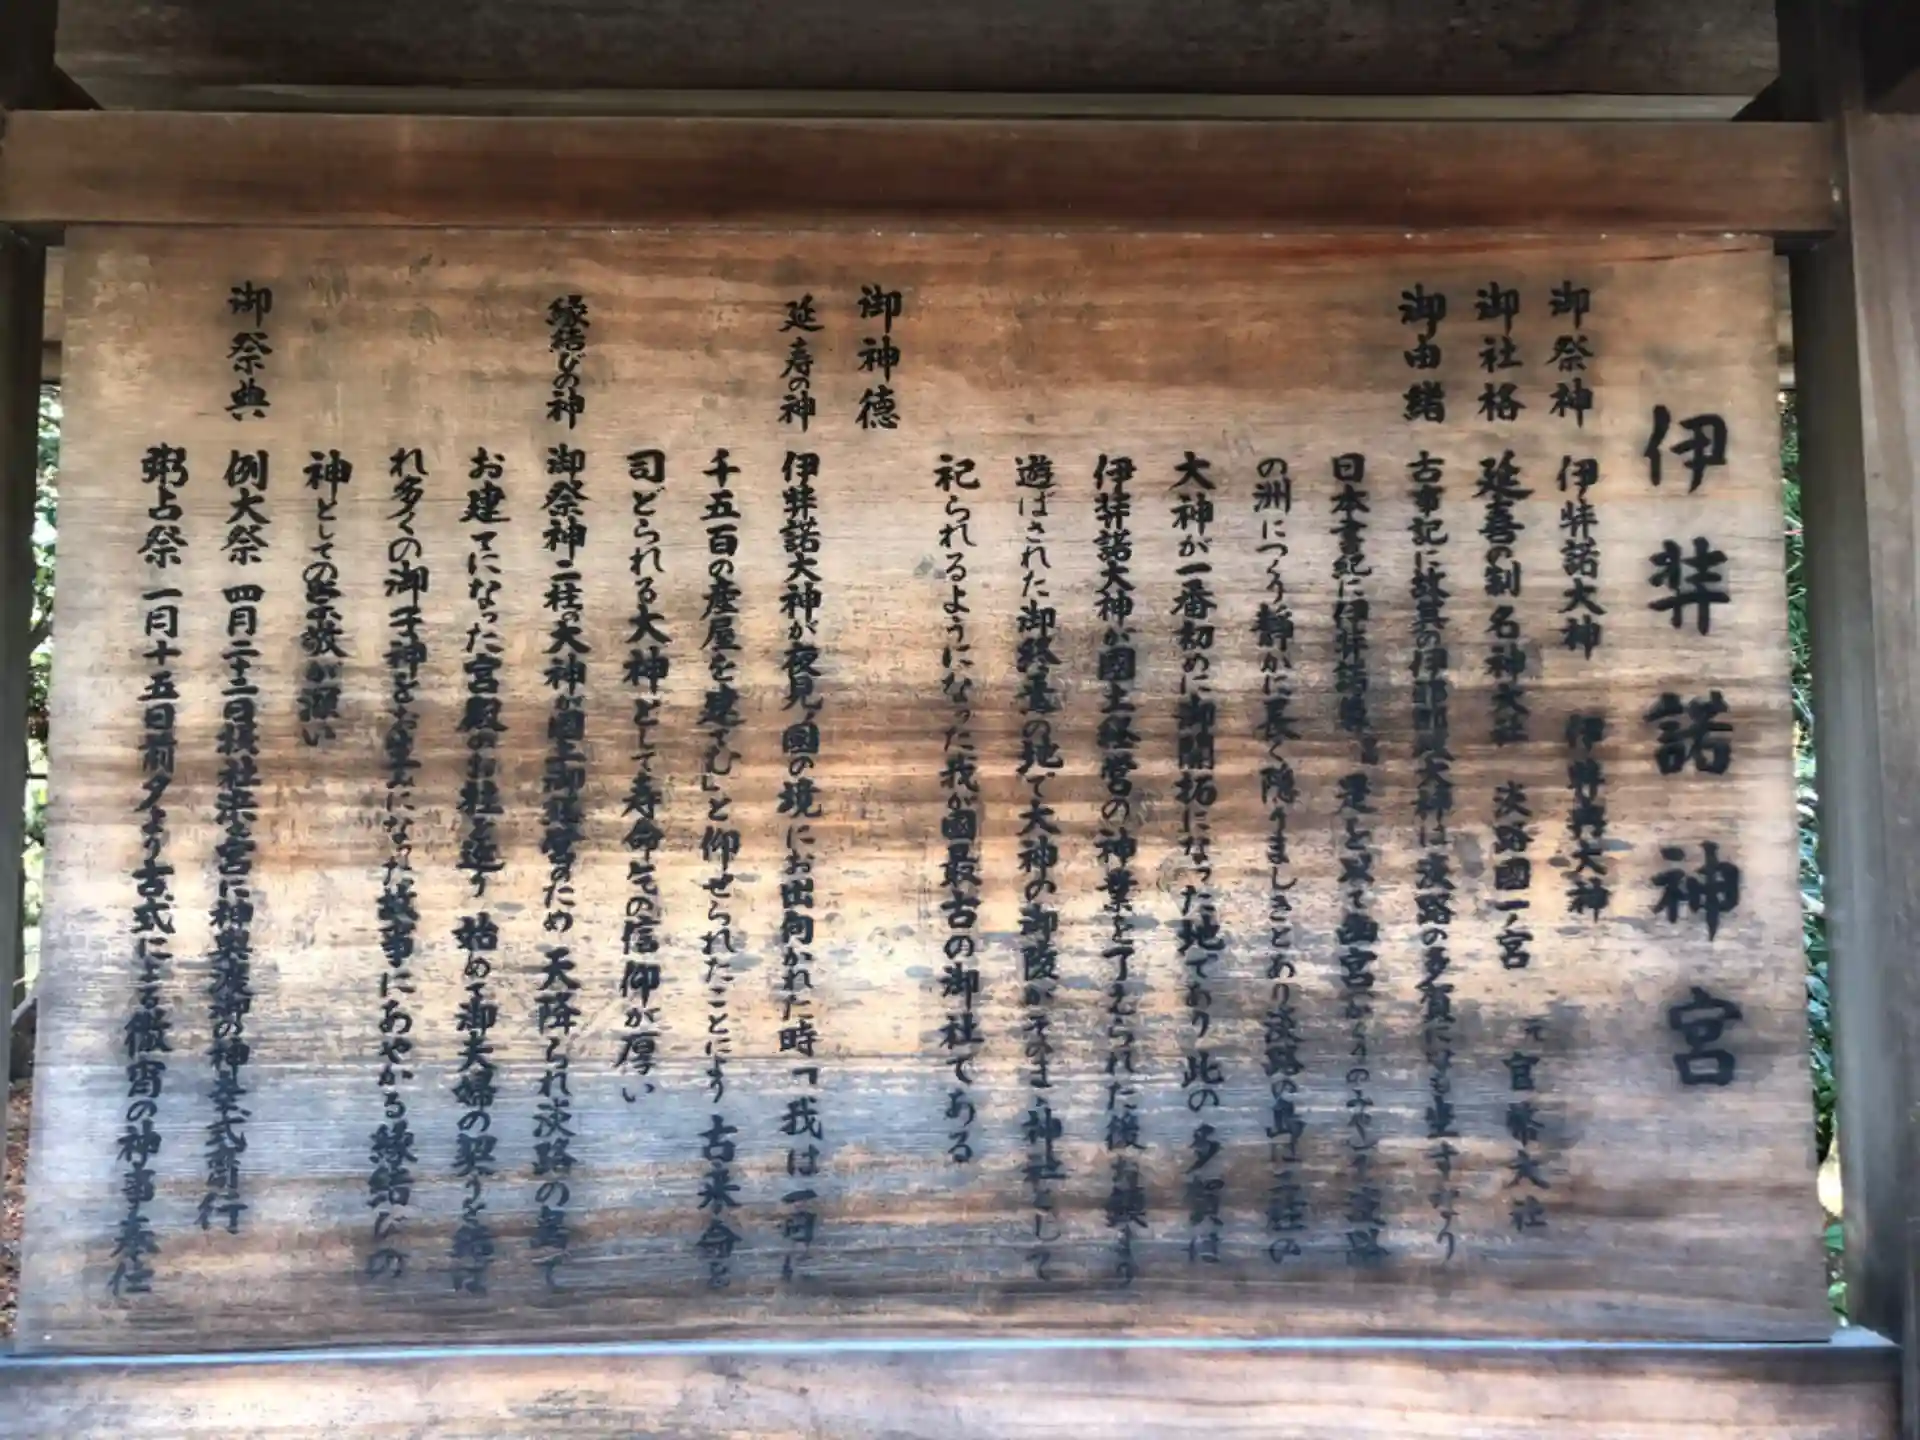 伊弉諾神宮
御祭神 伊弉諾大神 伊弉冉大神
御社格 延喜の制 名神大社 淡路國一ノ宮 元 官幣大社
御由緒 古事記に故其の伊耶那岐大神は淡路の多賀になも坐すなり
日本書紀に伊弉諾尊 是を以て幽宮 かくりのみや を淡路
の洲につくり静かに長く隠りましきとあり淡路の島は二柱の
大神が一番初めに御開拓になった地であり此の多賀は
伊弉諾大神が國土経営の神業を了えられた後お鎮まり
遊ばされた御終焉の地で大神の御陵がそのまゝ神社として
祀られるようになった我が國最古の御社である
御神徳
延寿の神 伊弉諾大神が夜見ノ國の境にお出向かれた時「我は一日に
千五百の産屋を建てむ」と仰せられたことにより 古来命を
司どられる大神として寿命の信仰が厚い
縁結びの神 御祭神二柱の大神が國土御経営のため 天降られ淡路の島て
お建てになった宮殿のお社を造り 始めて御夫婦の契りを結ば
れ多くの御子神をお生みになった故事にあやかる縁結びの
神としての崇敬が深い
御祭典 例大祭 四月二十二日摂社浜之宮に神輿渡御の神幸式斎行
粥占祭 一月十五日前夕より古式による徹宵の神事奉仕